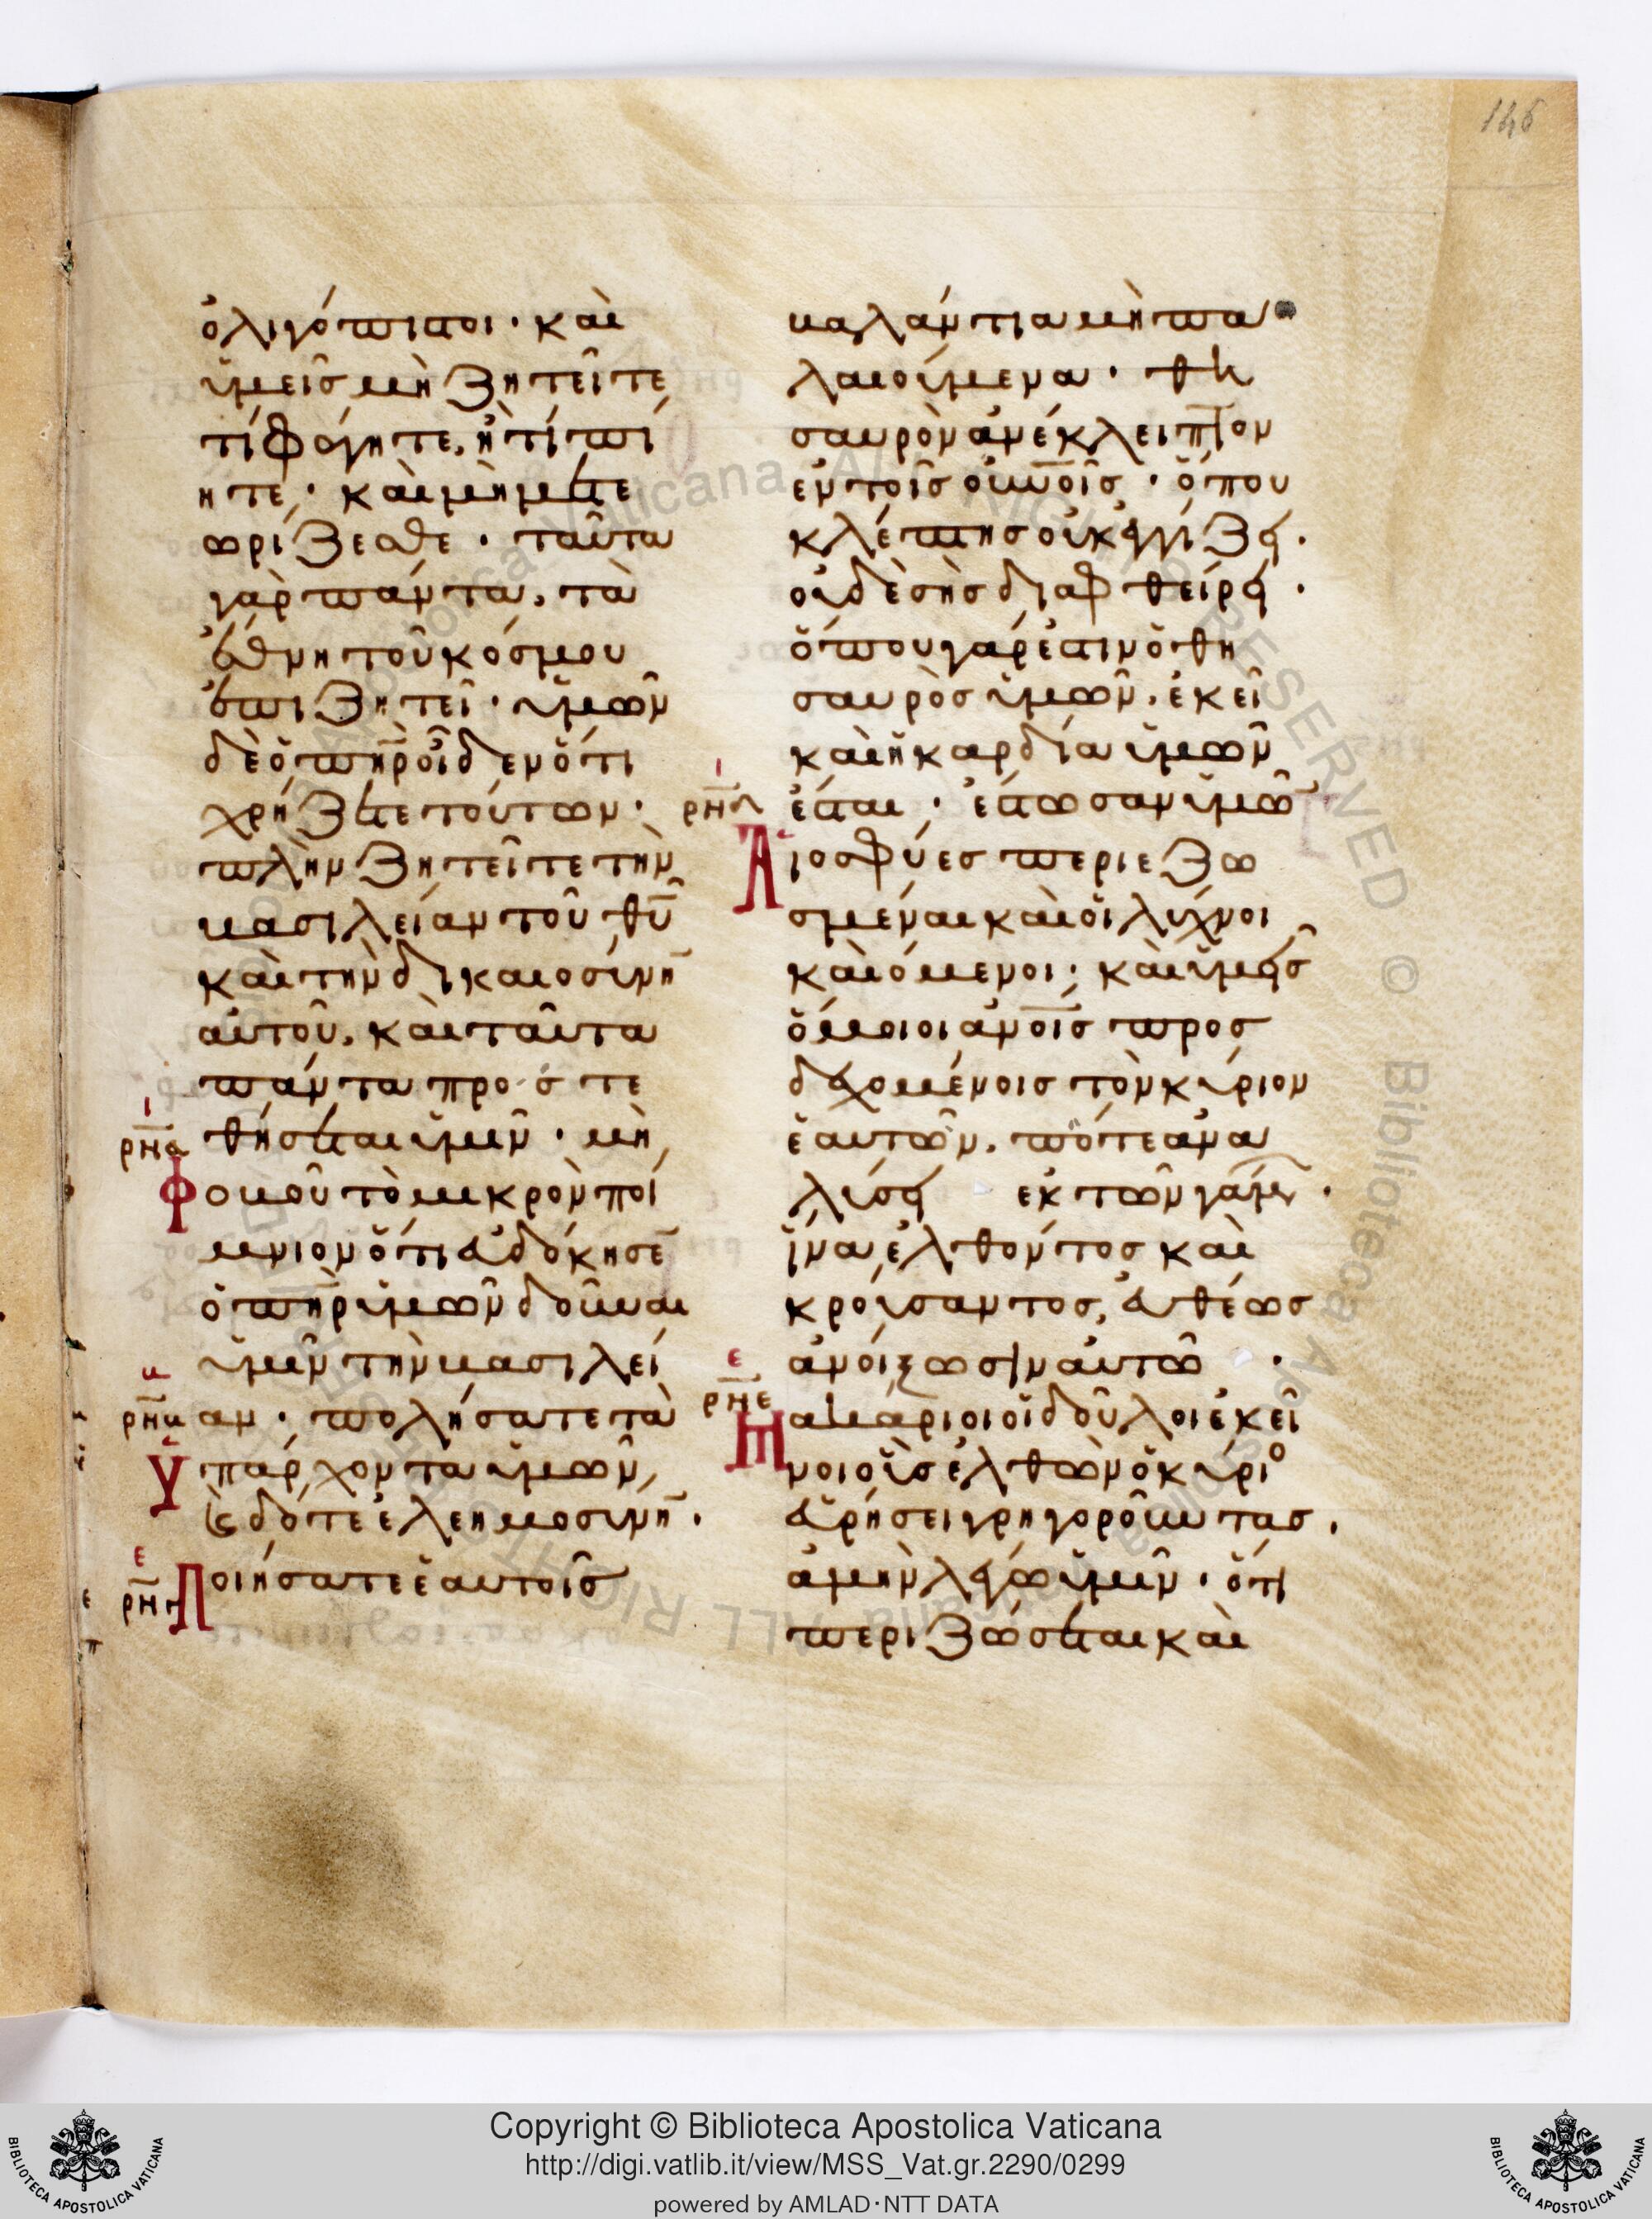 146
ὀλιγόπιστοι · καὶ
ὑμεῖς μὴ ζητεῖτε
τί φάγητε, ἢ τί πί
ητε · καὶ μὴ μετε
ωρίζεσθε · ταῦτα
γὰρ πάντα, τὰ
ἔθνη τοῦ κόσμου
ἐπιζητεῖ · ὑμῶν
δὲ ὁ πη̅ρ οἶδεν ὅτι
χρήζετε τούτων ·
πλὴν ζητεῖτε τὴν
βασιλείαν τοῦ θυ̅
καὶ τὴν δικαιοσύνη̅
αὐτοῦ, καὶ ταῦτα
πάντα προσ τε
ρΗα
θήσεται ὑμῖν · μὴ
Φοβοῦ τὸ μικρὸν ποί
μνιον ὅτι εὐδόκησε̅
ὁ πη̅ρ ὑμῶν δοῦναι
ὑμῖν τὴν βασιλεί
ρΗβ
αν · πολήσατε τὰ
Ὑπάρχοντα ὑμῶν,
καὶ δότε ἐλεημοσύνη̅ ·
ε
ρΗγ
Ποιήσατε ἑαυτοῖς
βαλάντια μὴ πα
λαιούμενα · θη
σαυρὸν ἀνέκλειπτον
ἐν τοῖς οὐνο̅ῖς · ὅπου
κλέπτης οὐκ ἐγγίζει ·
οὐδὲ σὴς διαφθείρει ·
ὅπου γάρ ἐστιν ὁ θη
σαυρὸς ὑμῶν, ἐκεῖ
καὶ ἡ καρδία ὑμῶν
ρΗδ
ἔσται · ἔστωσαν ὑμῶ̅
Αἱ ὀσφύες περιεζω
σμέναι καὶ οἱ λύχνοι
καιόμενοι · καὶ ὑμεῖς
ὅμοιοι ἀνο̅ις προσ
δεχομένοις τὸν κύριον
ἑαυτῶν, πότε ἀνα
λύσει ἐκ τῶν γάμων ·
ἵνα ἐλθόντος καὶ
κρούσαντος, εὐθέως
ἀνοίξωσιν αὐτῶ ·
ε
ρΗε
Μακάριοι οἱ δοῦλοι ἐκεῖ
νοι οὓς ἐλθὼν ὁ κύριο
εὑρήσει γρηγοροῦντας ·
ἀμὴν λέγω ὑμῖν · ὅτι
περιζώσεται καὶ
Copyright © Biblioteca Apostolica Vaticana
http://digi.vatlib.it/view/MSS_Vat.gr.2290/0299
powered by AMLAD·NTT DATA
BIBLIOTECA APOSTOLICA VATICANA
BIBLIOTECA APOSTOLICA VATICANA